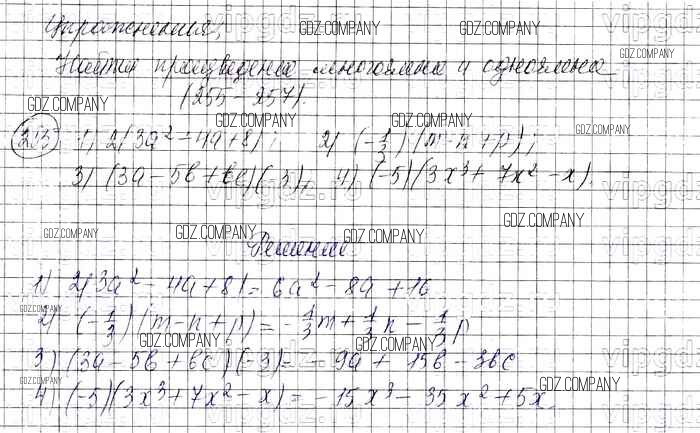 Упражнения.
Найти произведение многочлена и одночлена
(255-257).
255 1) 2(3a² - 4a + 8); 2) (-1/3)(m - n + p);
3) (3a - 5b + bc)(-3); 4) (-5)(3x³ + 7x² - x).
Решение
1) 2(3a² - 4a + 8) = 6a² - 8a + 16
2) (-1/3)(m - n + p) = -1/3m + 1/3n - 1/3p
3) (3a - 5b + bc)(-3) = -9a + 15b - 3bc
4) (-5)(3x³ + 7x² - x) = -15x³ - 35x² + 5x.
GDZ.COMPANY
vipgdz